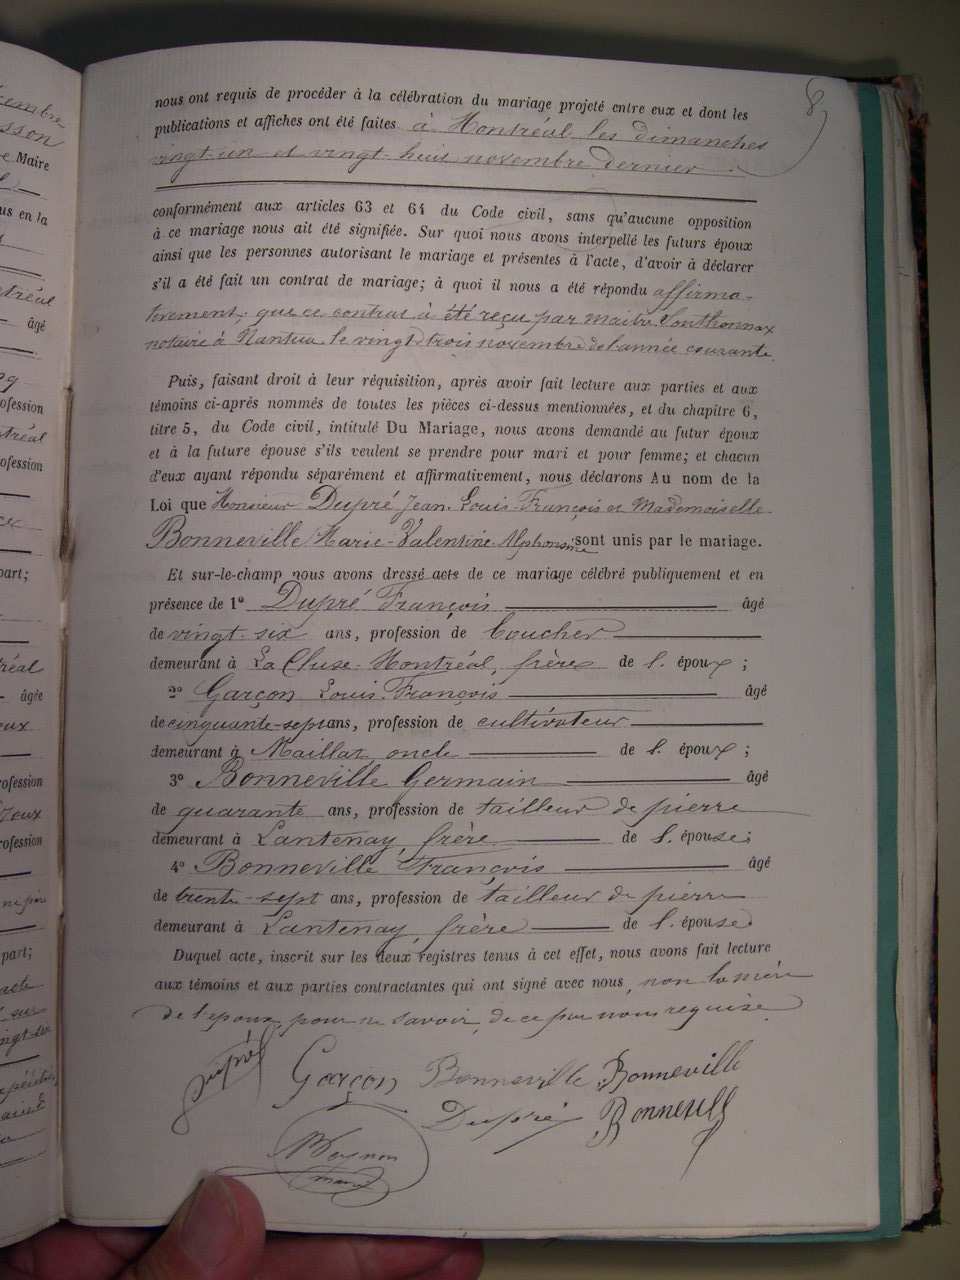 8
nous ont requis de procéder à la célébration du mariage projeté entre eux et dont les
publications et affiches ont été faites à Montréal les dimanches
vingt-un et vingt-huit novembre dernier.
conformément aux articles 63 et 64 du Code civil, sans qu'aucune opposition
à ce mariage nous ait été signifiée. Sur quoi nous avons interpellé les futurs époux
ainsi que les personnes autorisant le mariage et présentes à l'acte, d'avoir à déclarer
s'il a été fait un contrat de mariage; à quoi il nous a été répondu affirma-
tivement, que ce contrat à été reçu par maître Sonthonnax
notaire à Nantua, le vingt-trois novembre de l'année courante.
Puis, faisant droit à leur réquisition, après avoir fait lecture aux parties et aux
témoins ci-après nommés de toutes les pièces ci-dessus mentionnées, et du chapitre 6,
titre 5, du Code civil, intitulé Du Mariage, nous avons demandé au futur époux
et à la future épouse s'ils veulent se prendre pour mari et pour femme; et chacun
d'eux ayant répondu séparément et affirmativement, nous déclarons Au nom de la
Loi que Monsieur Dupré Jean-Louis-François et Mademoiselle
Bonneville Marie-Valentine-Alphonsine sont unis par le mariage.
Et sur-le-champ nous avons dressé acte de ce mariage célébré publiquement et en
présence de 1° Dupré François âgé
de vingt-six ans, profession de boucher
demeurant à La Cluse-Montréal, frère de l'époux;
2° Garçon Louis-François âgé
de cinquante-sept ans, profession de cultivateur
demeurant à Maillat, oncle de l'époux;
3° Bonneville Germain âgé
de quarante ans, profession de tailleur de pierre
demeurant à Lantenay, frère de l'épouse;
4° Bonneville François âgé
de trente-sept ans, profession de tailleur de pierre
demeurant à Lantenay, frère de l'épouse
Duquel acte, inscrit sur les deux registres tenus à cet effet, nous avons fait lecture
aux témoins et aux parties contractantes qui ont signé avec nous, non la mère
de l'époux, pour ne savoir, de ce par nous requise.
Dupré Garçon Bonneville Bonneville
Dupré Bonneville
maire